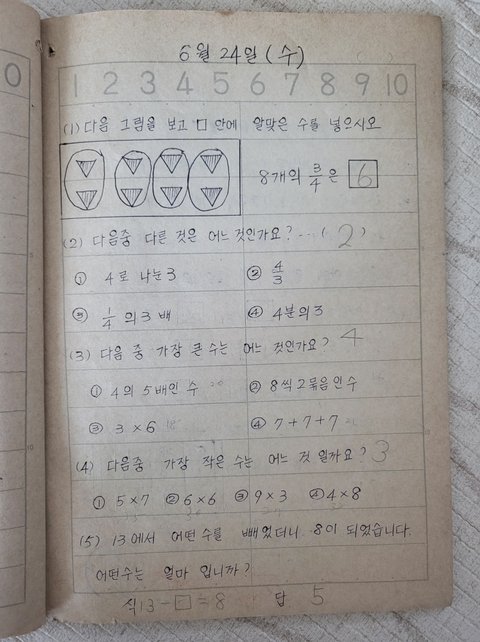 6월 24일 (수)
0
1 2 3 4 5 6 7 8 9 10
(1) 다음 그림을 보고 □ 안에 알맞은 수를 넣으시오
8개의 3/4 은 6
(2) 다음중 다른 것은 어느것인가요? ···( 2 )
① 4로 나눈3 ② 4/3
③ 1/4 의3 배 ④ 4분의3
(3) 다음 중 가장 큰수는 어느 것인가요? 4
① 4의 5배인 수 20 ② 8씩2묶음인수
③ 3×6 18 ④ 7+7+7
(4) 다음중 가장 작은 수는 어느 것 일까요? 3
① 5×7 ② 6×6 ③ 9×3 ④ 4×8
(5) 13에서 어떤 수를 빼었더니 8이 되었습니다.
어떤수는 얼마 입니까?
식13-□=8 답 5